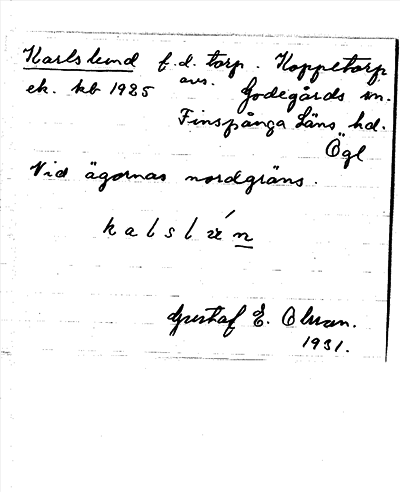 Karlslund f.d. torp. Koppetorp
ek. kb 1925 avs. Godegårds sn.
Finspånga Läns hd.
Ögl
Vid ägornas nordgräns.
kalslún
Gustaf E. Olsson.
1931.